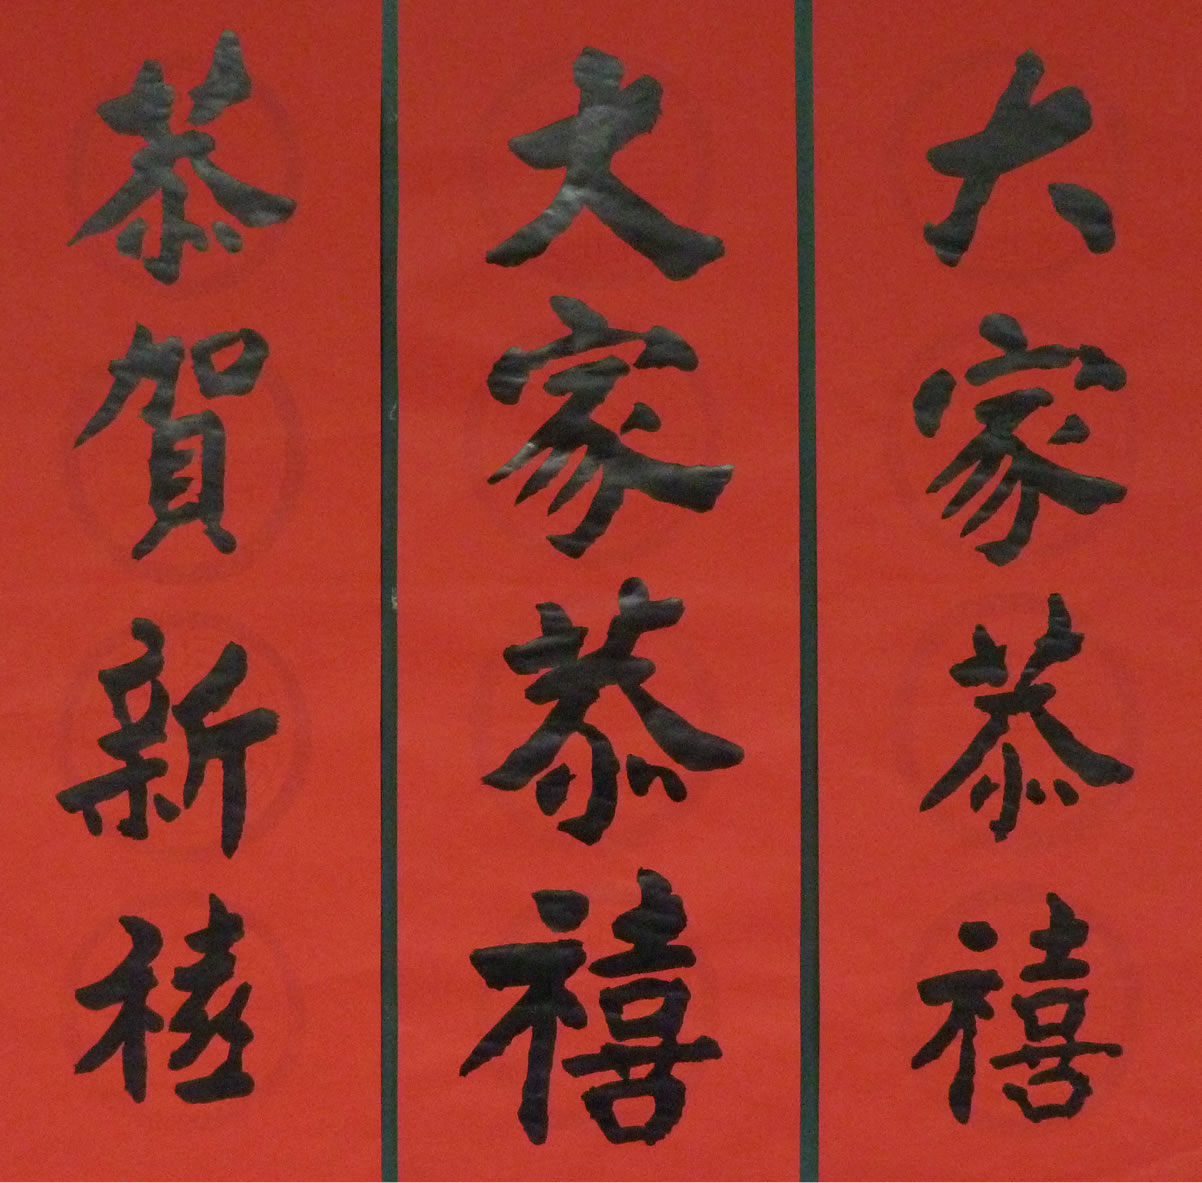 大家恭禧
大家恭禧
恭賀新禧